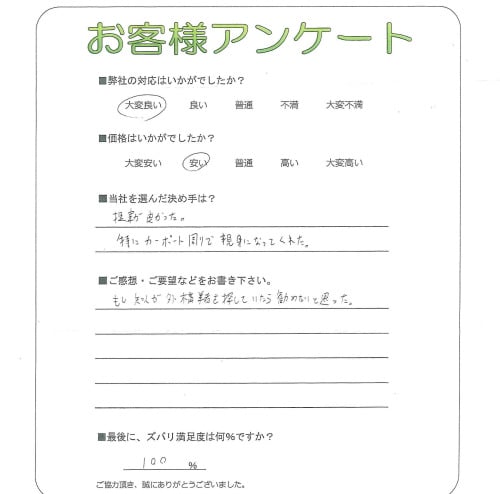 お客様アンケート
■弊社の対応はいかがでしたか？
大変良い 良い 普通 不満 大変不満
■価格はいかがでしたか？
大変安い 安い 普通 高い 大変高い
■当社を選んだ決め手は？
提案が良かった。
特にカーポート周りで親身になってくれた。
■ご感想・ご要望などをお書き下さい。
もし知人が外構業者を探していたら勧めたいと思った。
■最後に、ズバリ満足度は何％ですか？
100 ％
ご協力頂き、誠にありがとうございました。